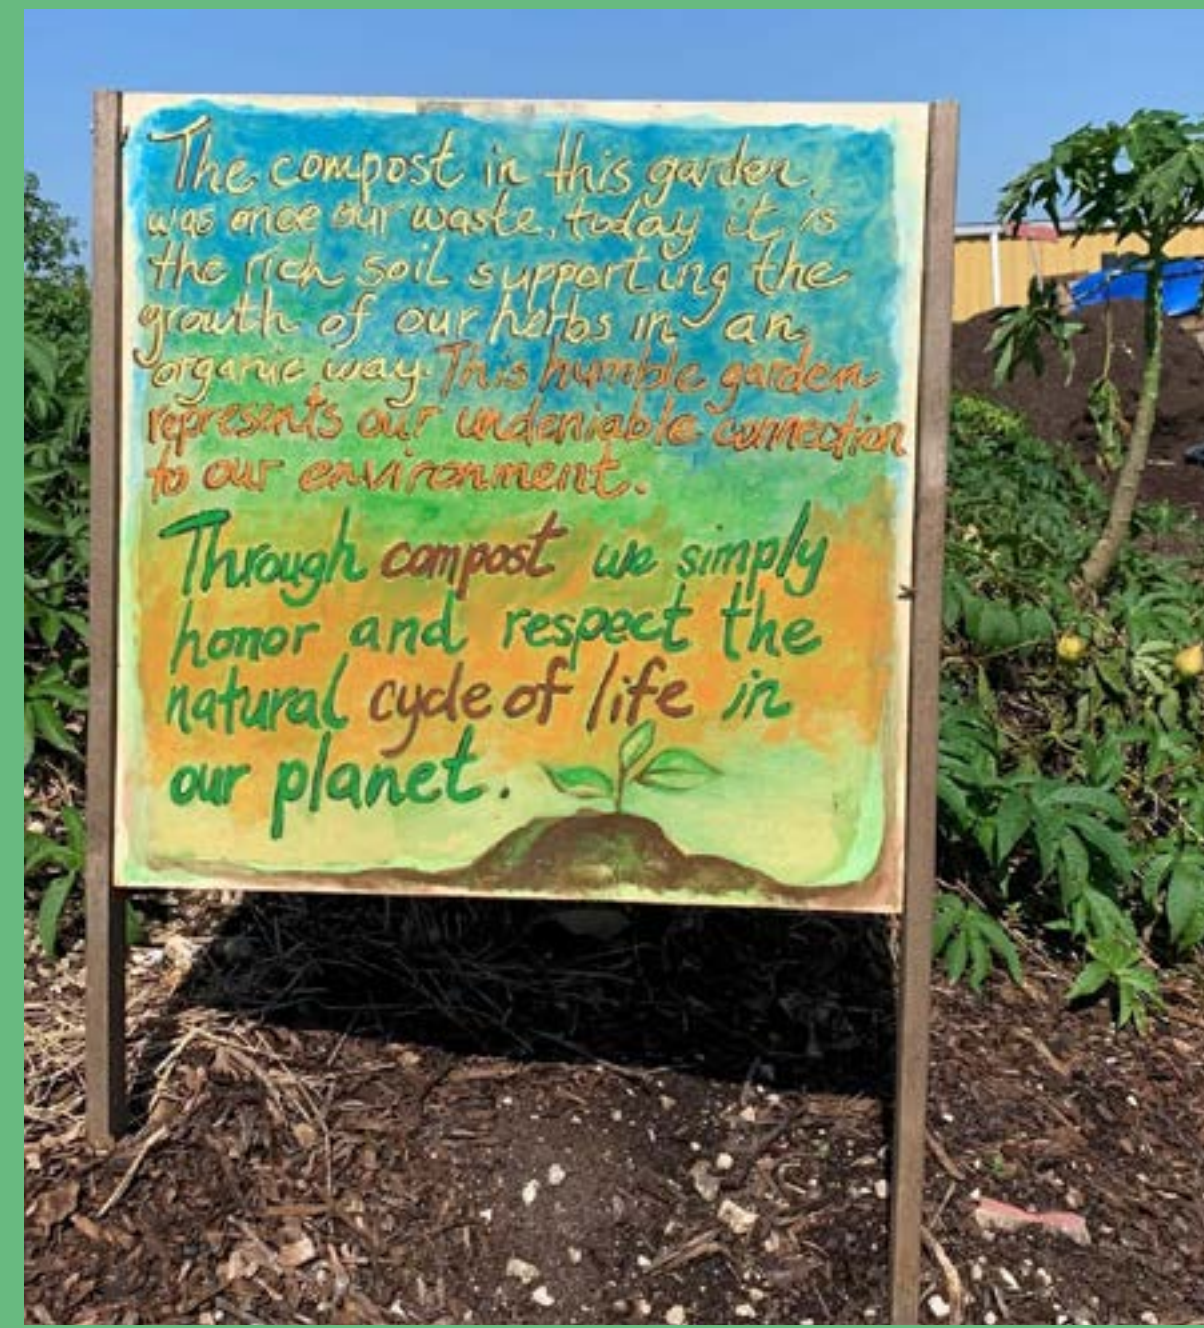 The compost in this garden,
was once our waste, today it is
the rich soil supporting the
growth of our herbs in an
organic way. This humble garden
represents our undeniable connection
to our environment.
Through compost we simply
honor and respect the
natural cycle of life in
our planet.